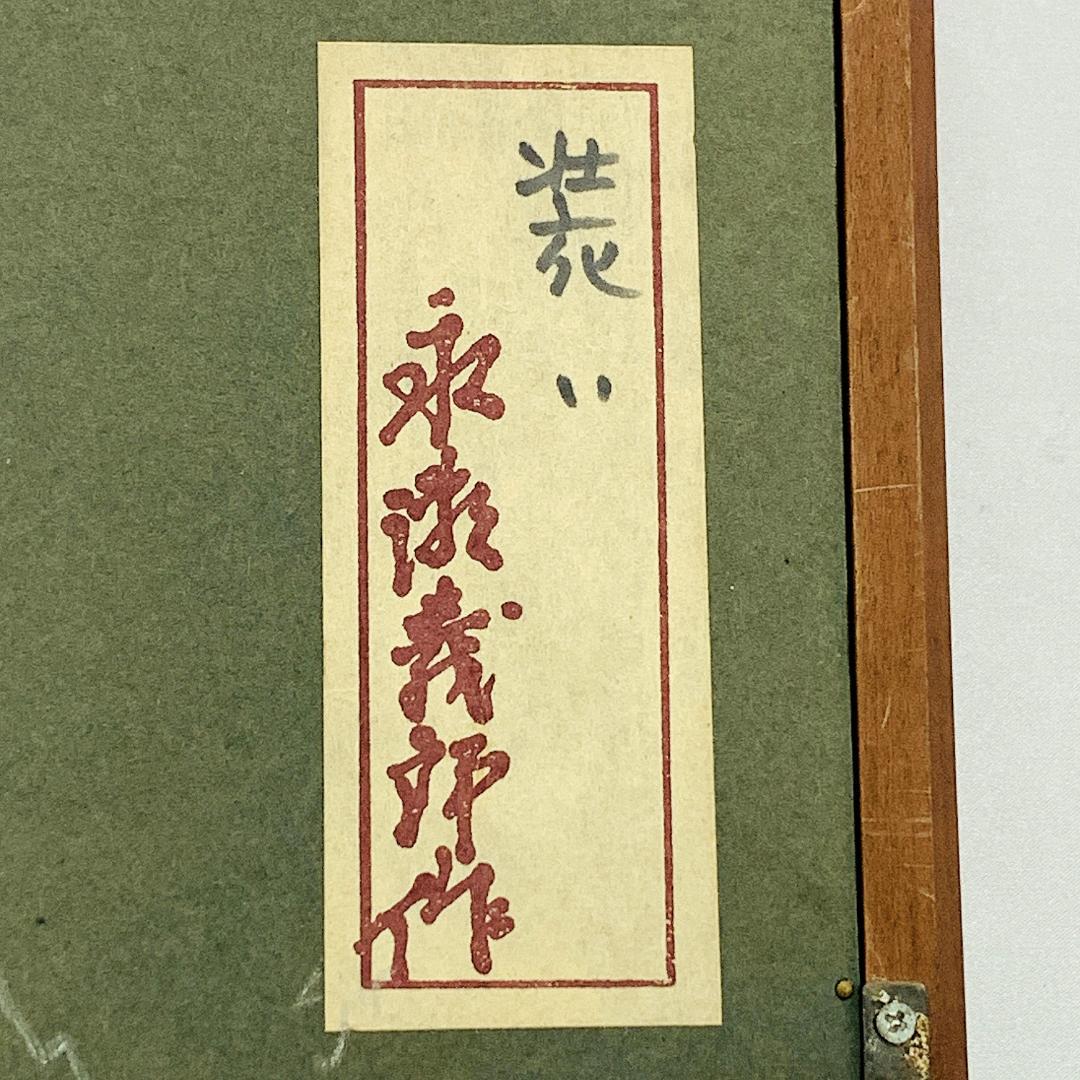 装い
永瀬義郎作